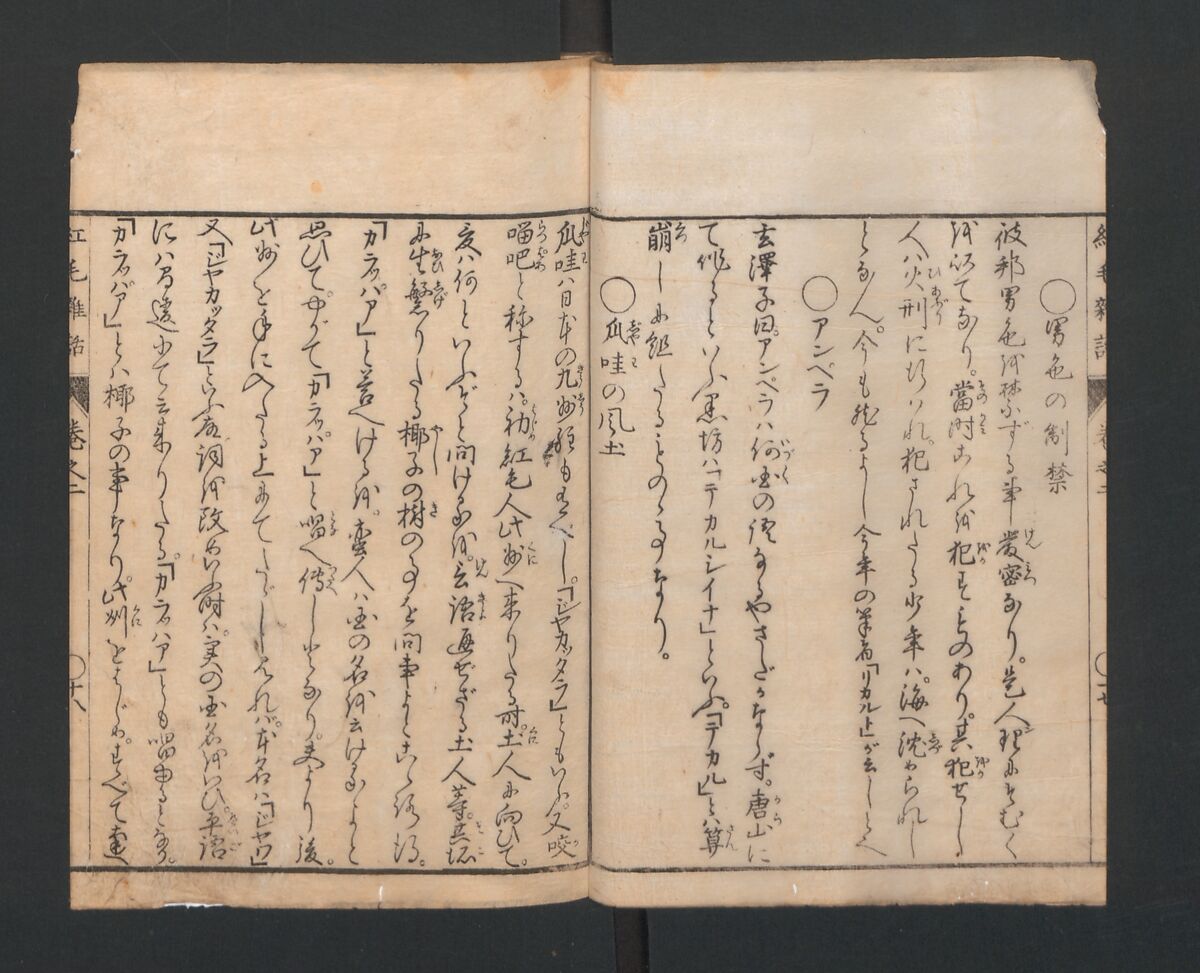 ○男色の制禁
彼邦男色を禁ずる事厳密なり。是人理にそむく
を以てなり。當時これを犯すものあり。其犯せし
人ハ火刑に行ハれ。犯されたる少年ハ。海へ沈められし
となん。今も然るよし今年の筆者「リカルト」が云しとぞ
○アンペラ
玄澤子曰。アンペラハ何国の語なるやさだかならず。唐山に
て作るといふ。黒坊ハ「テカルシイナ」といふ。「テカル」とハ算
崩しに組たるものゝ事なり。
○爪哇の風土
爪哇ハ日本の九州程も有べし。「ジヤカッタラ」ともいふ。又咬
𠺕吧と称するハ。初紅毛人此州へ来りたる時。土人に向ひて。
爰ハ何といふぞと問けるを。言語通ぜざる土人等。其所
に生繁りたる椰子の樹の事を問事よとこゝろ得。
「カラッパア」と答へけるを。蛮人ハ国の名を云けるよと
思ひて。やがて「カラッパア」と唱へ傳しとなり。夫より後。
此州を手に入たる上にてたゞしければ。本名ハ「ジヤワ」
又「ジヤカッタラ」といふ。
にハ間違にて云来りたる。「カラッパア」とも唱申るとなり。
「カラッパア」とハ椰子の事なり。此州をはじめ。すべて遠
紅毛雑話
巻之二
○十八